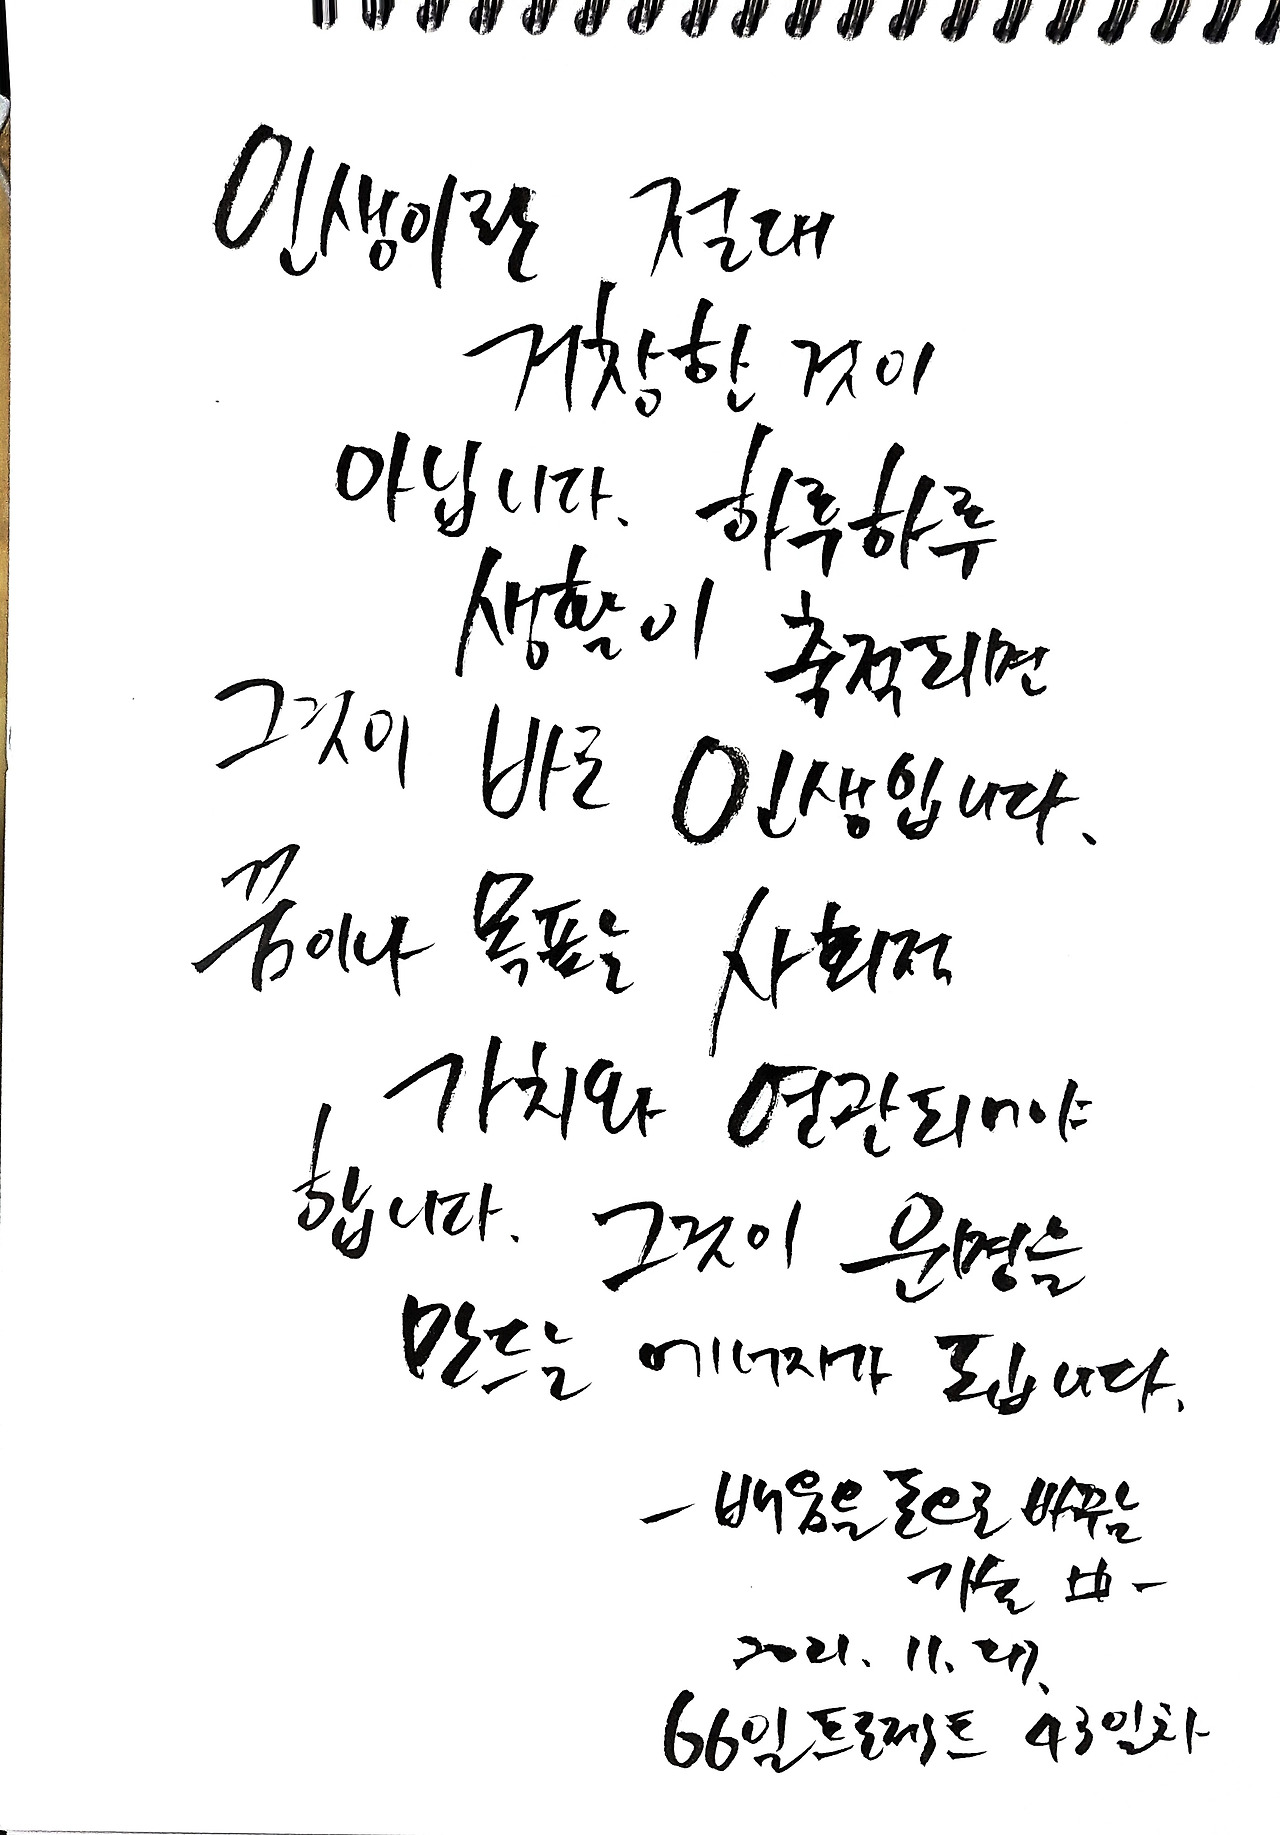 인생이란 절대
거창한 것이
아닙니다. 하루하루
생활이 축적되면
그것이 바로 인생입니다.
꿈이나 목표는 사회적
가치와 연관되어야
합니다. 그것이 운명을
만드는 에너지가 됩니다.
- 배움을 돈으로 바꾸는
기술 中 -
2021. 11.
66일프로젝트 43일차